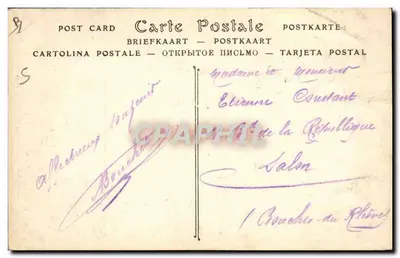 POST CARD Carte Postale POSTKARTE
BRIEFKAART — POSTKAART
CARTOLINA POSTALE — ОТКРЫТОЕ ПИСЬМО — TARJETA POSTAL
S
Affectueux
Madame et Monsieur
Etienne Constant
de la République
Salon
Bouches-du-Rhône